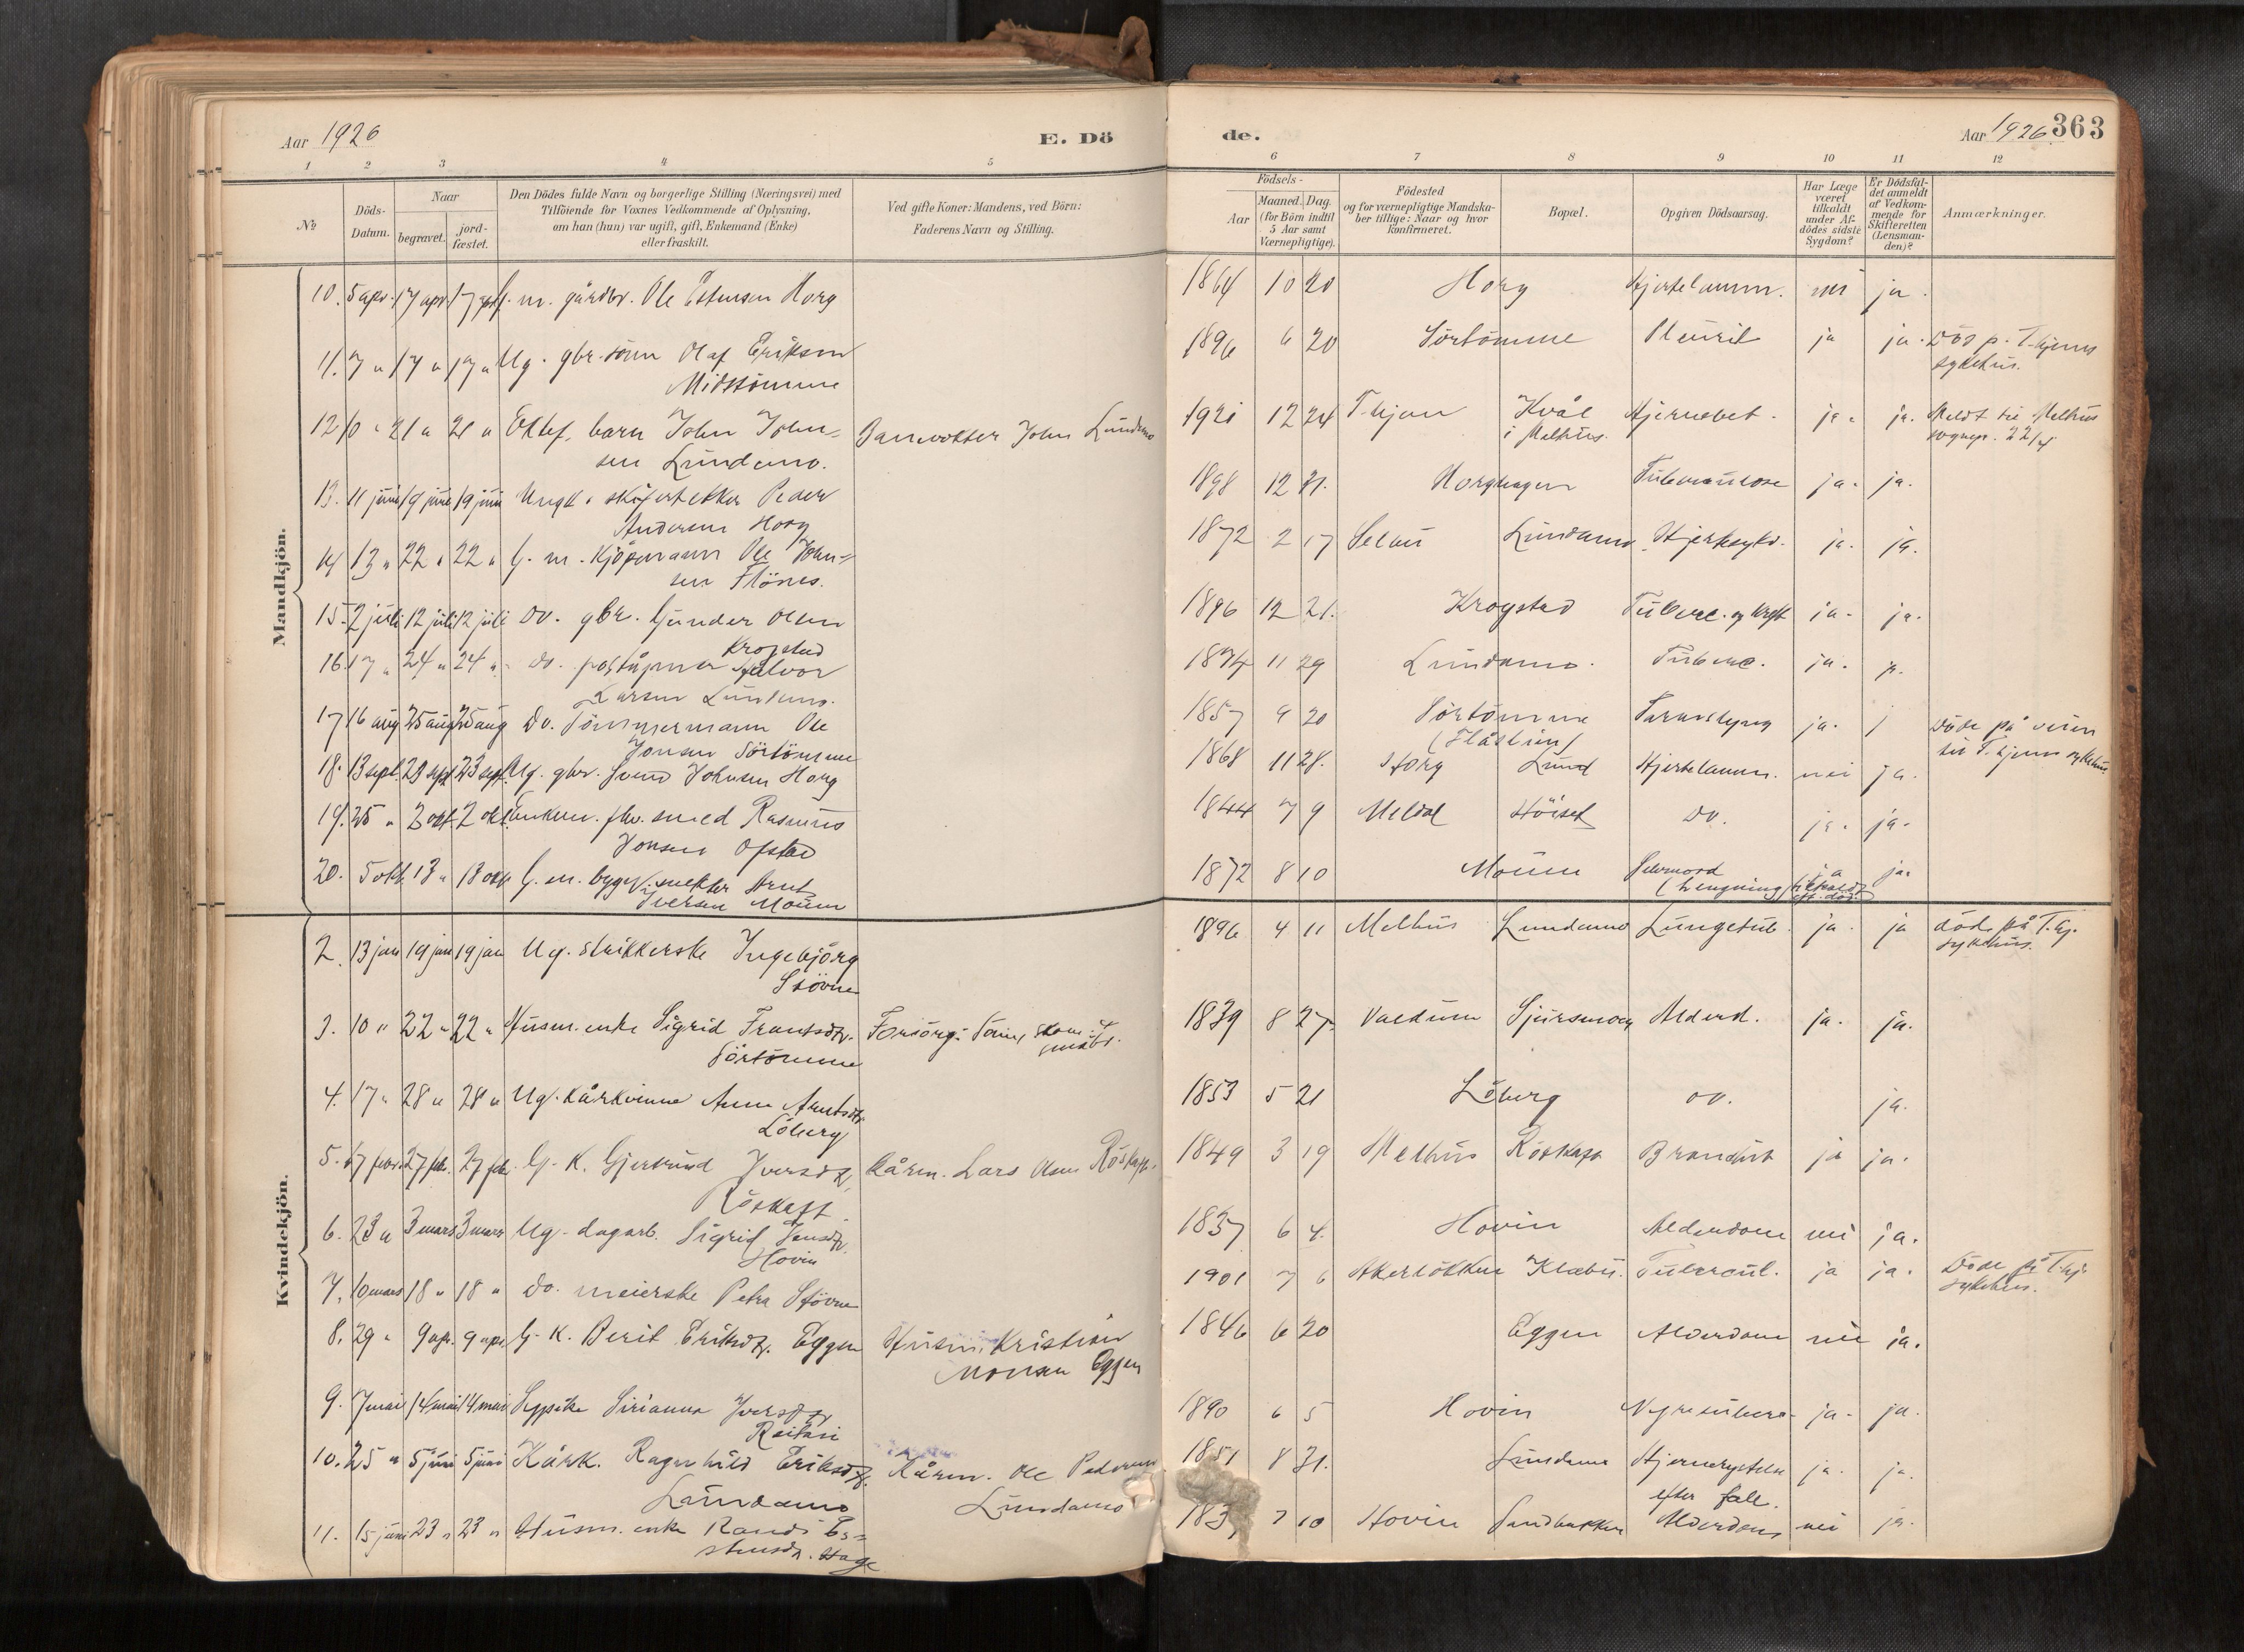 Aar 1926
E. Dö
de.
Aar 1926. 363
1 2 3 4 5 6 7 8 9 10 11 12
No
Döds-Datum.
Naar
begravet.
jordfæstet.
Den Dödes fulde Navn og borgerlige Stilling (Næringsvei) med
Tilföiende for Voxnes Vedkommende af Oplysning,
om han (hun) var ugift, gift, Enkemand (Enke)
eller fraskilt.
Ved gifte Koner: Mandens, ved Börn:
Faderens Navn og Stilling.
Födsels-
Aar
Maaned. Dag.
(for Börn indtil
5 Aar samt
Værnepligtige).
Födested
og for værnepligtige Mandskaber tillige: Naar og hvor
konfirmeret.
Bopæl.
Opgiven Dödsaarsag.
Har Læge
været
tilkaldt
under Afdödes sidste
Sygdom?
Er Dödsfaldet anmeldt
af Vedkommende for
Skifteretten
(Lensmanden)?
Anmærkninger.
Mandkjön.
10. 5 apr. 17 apr. 17 apr. G. m. gårdbr. Ole Estensen Horg 1864 10 20 Horg Hjertelamm. nei ja.
11. 7 " 17 " 17 " Ug. gbr. sönn Olaf Eriksen
Midttömme 1896 6 20 Sörtömme Pleurit ja ja. Död p. T-hjems
sykehus.
12 10 " 21 " 21 " Ektef. barn John John-
sen Lundamo. Banevokter John Lundamo 1921 12 24 T-hjem Kvål
i Melhus. Hjernebet. ja. ja. Meldt til Melhus
sognepr. 22/4
13. 11 juni 19 juni 19 juni Ungk. skifertekker Peder
Andersen Horg 1898 12 21. Horghagen Tuberculose ja. ja.
14 13 " 22 " 22 " G. m. Kjöpmann Ole John-
sen Flönes. 1872 2 17 Selbu Lundamo Hjertesykd. ja. ja.
15. 2 juli 12 juli 12 juli Do. gbr. Gunder Olsen
Krogstad 1896 12 21. Krogstad Tuberc. ja. ja.
16. 17 " 24 " 24 " do. poståpner Halvor
Larsen Lundamo. 1874 11 29 Lundamo. Tuberc. ja. ja.
17 16 aug 25 aug 25 aug Do. Tömmermann Ole
Jonsen Sörtömme 1857 9 20 Sörtömme
(Flåslien) Tarmslyng ja. j Döde på veien
til T.hjems sykehus.
18. 13 sept. 23 sept 23 sept. Ug. gbr. Svend Johnsen Horg 1868 11 28. Horg Lund Hjertelamm. nei ja.
19. 25 " 2 okt 2 okt Enkem. fhv. smed Rasmus
Jonsen Ofstad 1844 7 9 Meldal Höiset do. ja. ja.
20. 5 okt. 13 " 13 okt. G. m. byggv. Arnt
Iversen Moum 1872 8 10 Moum Selvmord
(hengning) ja
tilkaldt
eft. död. ja.
Kvindekjön.
2. 13 jan 19 jan 19 jan Ug. strikkerske Ingebjörg
Stövne 1896 4 11 Melhus Lundamo Lungetub. ja. ja död på T.hj.
sykehus.
3. 10 " 22 " 22 " Husm. enke Sigrid Frantsdtr.
Sörtömme Forsörg: 1839 8 27. Valdum Sjursmoen Alderd. ja. ja.
4. 17 " 28 " 28 " Ug. kårkvinne Anne Arntsdtr
Löberg 1853 5 21 Löberg do. ja.
5. 17 febr. 27 febr. 27 febr. G. K. Gjertrud Iversdtr.
Röskaft Kårm. Lars Olsen Röskaft. 1849 3 19 Melhus Röskaft Bronchit ja ja.
6. 23 " 3 mars 3 mars Ug. dagarb. Sigrid Jensdtr.
Hovin 1837 6 4. Hovin Alderdom nei ja.
7. 10 mars 18 " 18 " Do. meierske Petra Stövne 1901 7 6 Akerlökken Klæbu. Tubercul. ja ja. Döde på T.hj.
sykehus.
8. 29 " 9 apr. 9 apr. G. K. Berit Eriksdtr. Eggen Husm. Kristian
Monsen Eggen 1846 6 20 Eggen Alderdom nei ja.
9. 7 mai 14 mai 14 mai Sypike Sirianna Iversdtr
1890 6 5 Hovin Nyretuberc. ja. ja.
10. 25 " 5 juni 5 juni Kårk. Ragnhild Eriksdtr.
Lundamo Kårm. Ole Pedersen
Lundamo 1851 8 31. Lundamo Hjernerystelse
efter fall. ja. ja.
11. 15 juni 23 " 23 " Husm. enke Randi Es-
tensdtr. Hage 183 7 10 Hovin Sandbakken Alderdom nei ja.